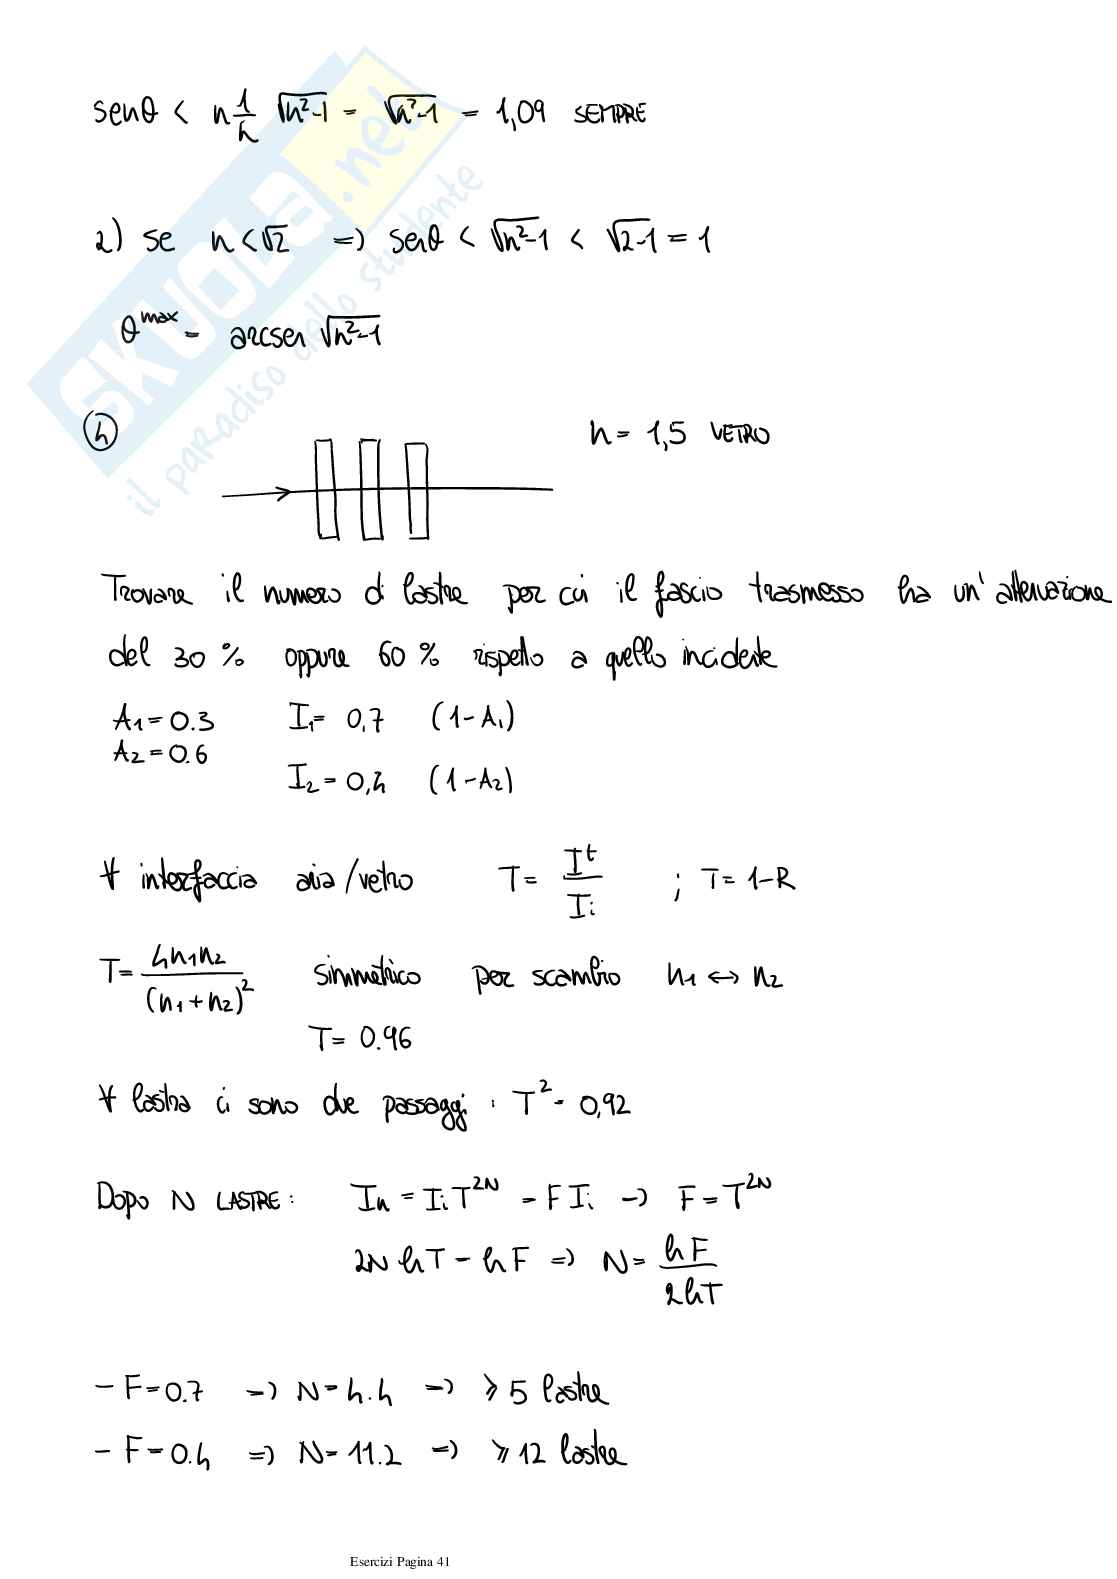 senθ < n 1/n √n²-1 = √n²-1 = 1,09 SEMPRE
2) se n<√2 => senθ < √n²-1 < √2-1 = 1
θ^max = arcsen √n²-1
④
n = 1,5 VETRO
Trovare il numero di lastre per cui il fascio trasmesso ha un' attenuazione
del 30 % oppure 60 % rispetto a quello incidente
A₁ = 0.3 I₁ = 0,7 (1-A₁)
A₂ = 0.6
I₂ = 0,4 (1-A₂)
∀ interfaccia aria/vetro T = I^t/I_i ; T = 1-R
T = 4n₁n₂/(n₁+n₂)² simmetrico per scambio n₁ ↔ n₂
T = 0.96
∀ lastra ci sono due passaggi : T² = 0,92
Dopo N LASTRE: I_n = I_i T^2N = F I_i → F = T^2N
2N ln T = ln F => N = ln F/2 ln T
- F = 0.7 → N = 4.4 → ≥ 5 lastre
- F = 0.4 => N = 11.2 => ≥ 12 lastre
Esercizi Pagina 41
SKUOLA.net
il paradiso dello studente